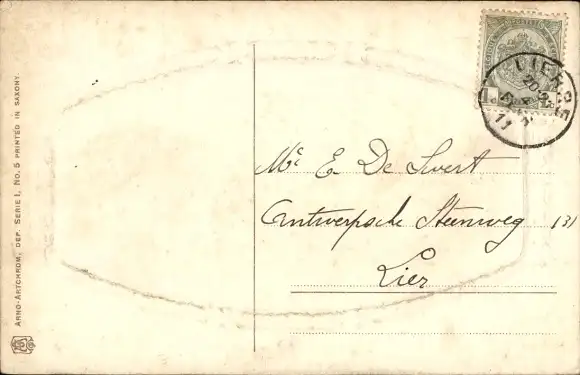 ARNO-ARTCHROM, DEP. SERIE I, NO. 5 PRINTED IN SAXONY.
LIERRE
11
Mc E De Swert
Antwerpsche Steenweg (3)
Lier